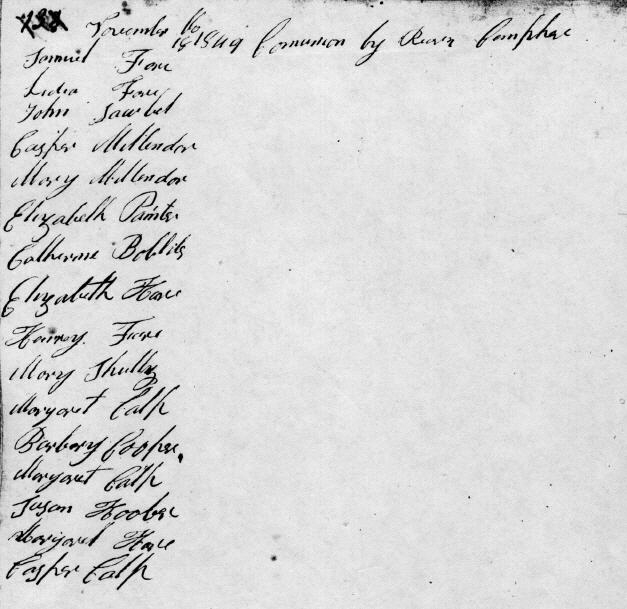 November 1849 Comunion by
Samuel Fore
Lidia Fore
John
Casper Millendor
Mary Millendor
Elizabeth Painter
Catherine Boblits
Elizabeth Hare
Fore
Mary Shultz
Margaret Calp
Barbary Cooper
Margaret Calp
Susan Hoober
Margaret Hare
Casper Calp